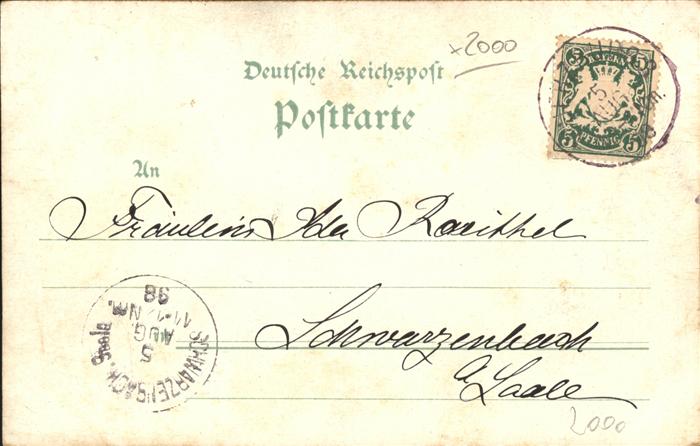 x2000
Deutsche Reichspost
Postkarte
5 BAYERN 5
5 PFENNIG 5
5
An
Fräulein Ida Raithel
Schwarzenbach
a/Saale
SCHWARZENBACH, Saale
5
AUG
11-12 NM.
98
2000